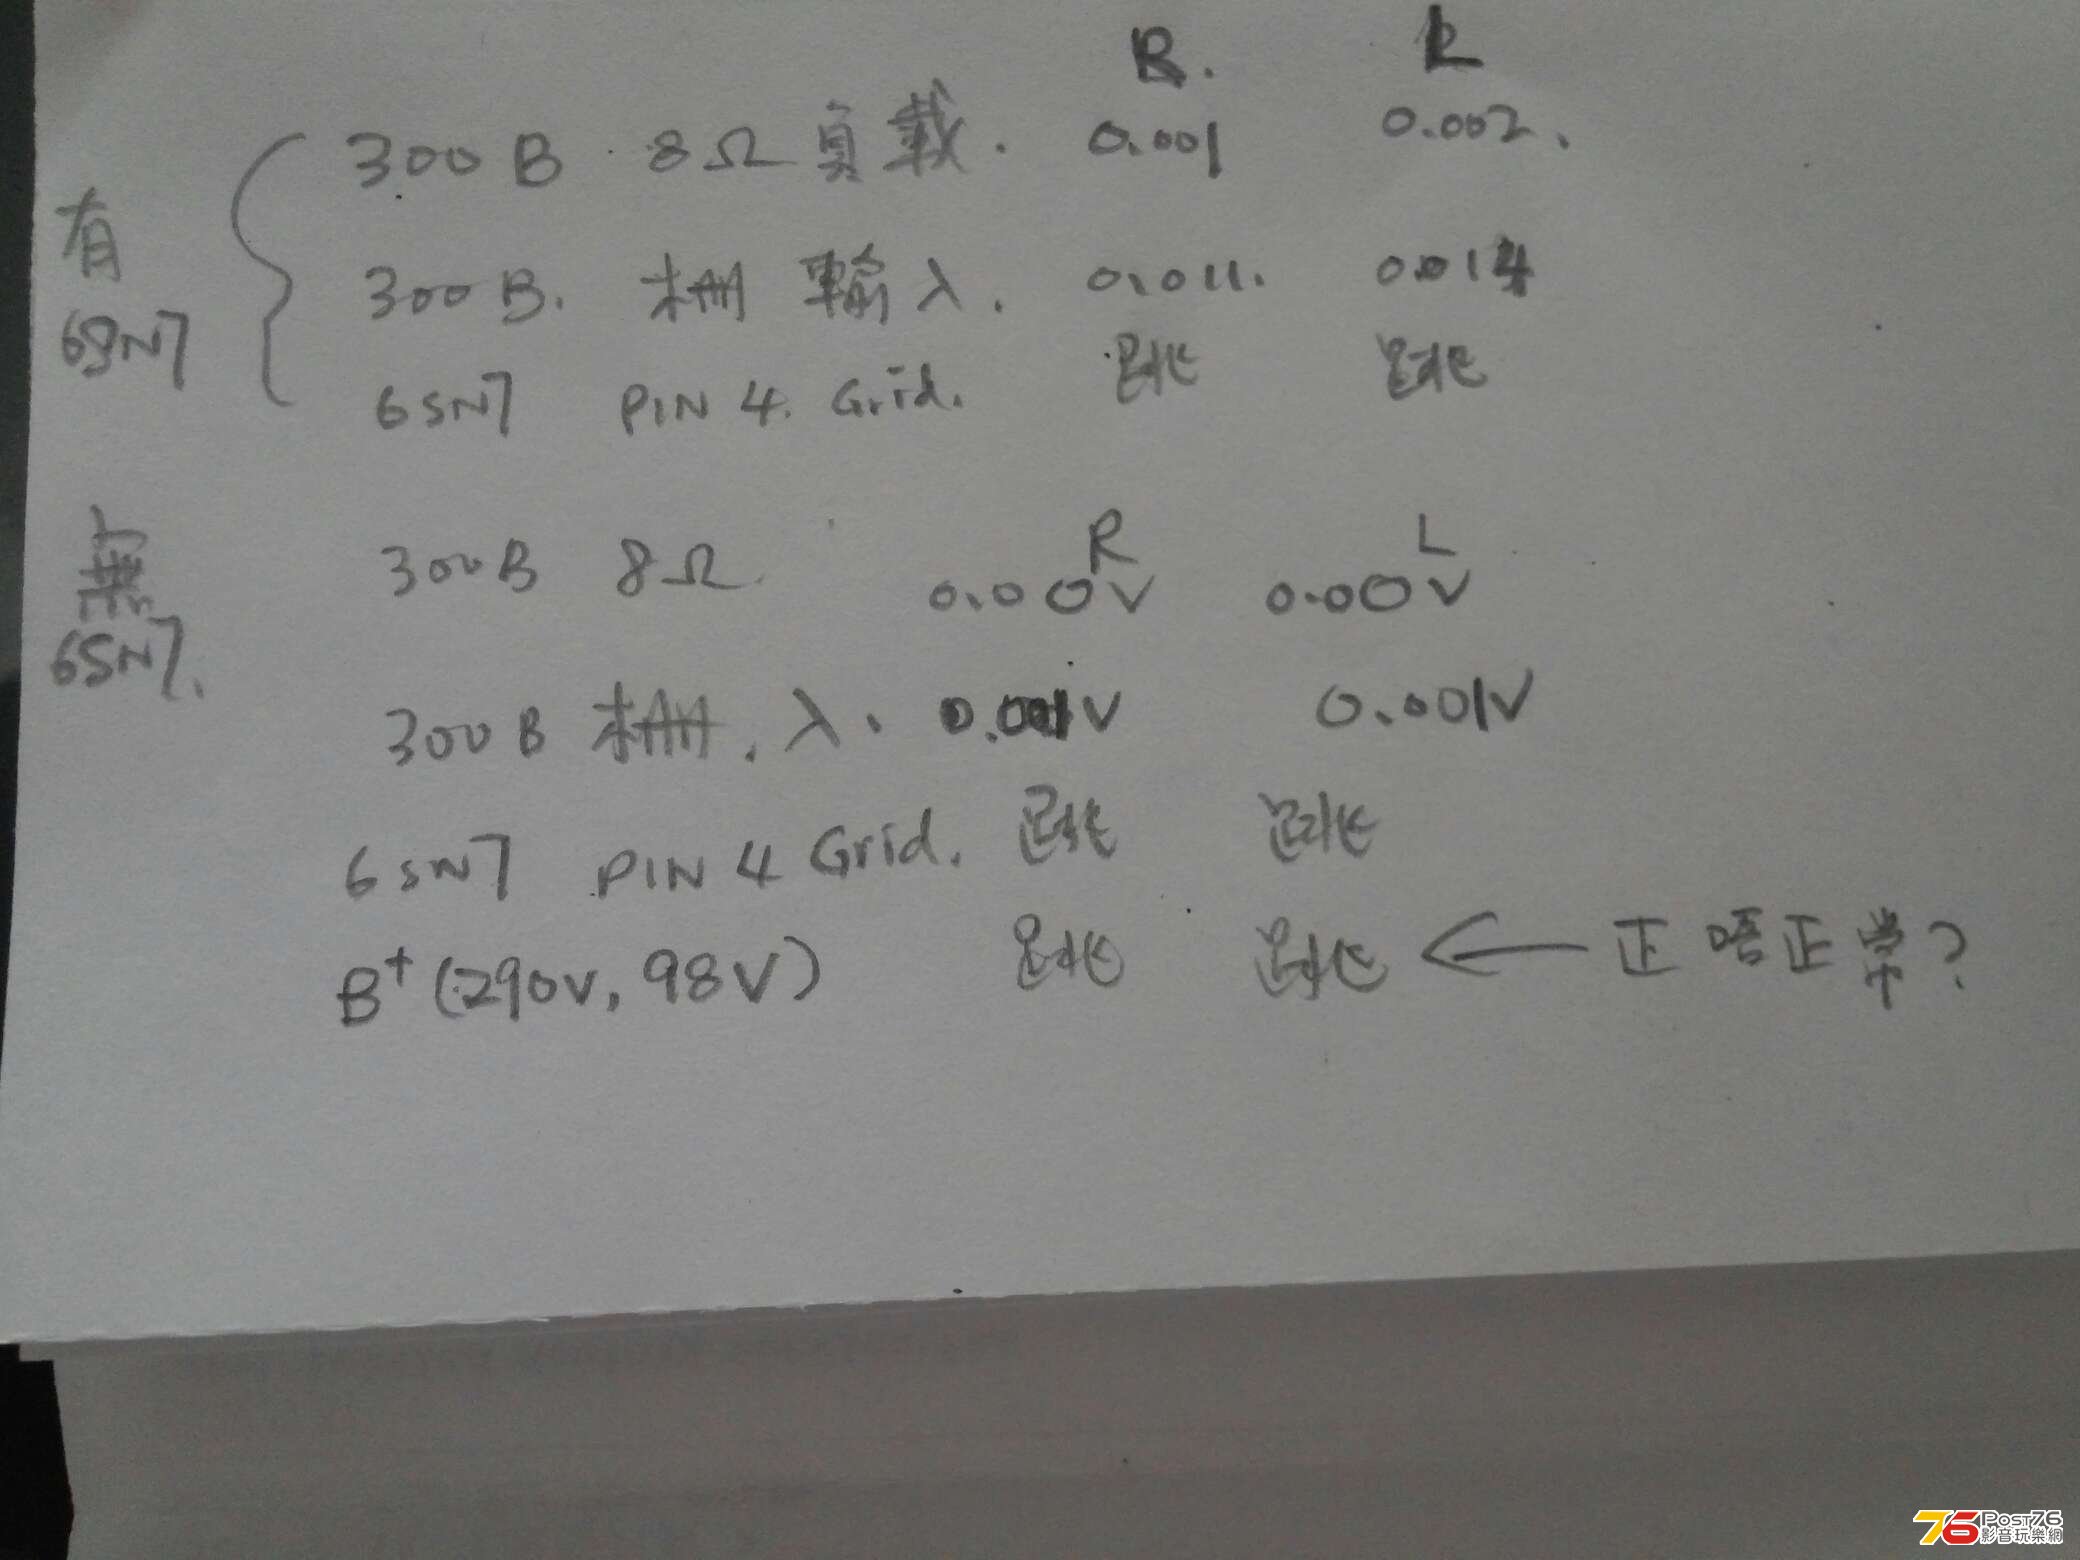 R. L
300B 8Ω 負載. 0.001 0.002.
有
6SN7
300B. 柵 輸入. 0.011. 0.014
6SN7 PIN 4. Grid. 跳 跳
無
6SN7.
R L
300B 8Ω 0.00V 0.00V
300B 柵. 入. 0.001V 0.001V
6SN7 PIN 4 Grid. 跳 跳
B+ (290V, 98V) 跳 跳 ← 正唔正常?
76 POST76
影音玩樂網